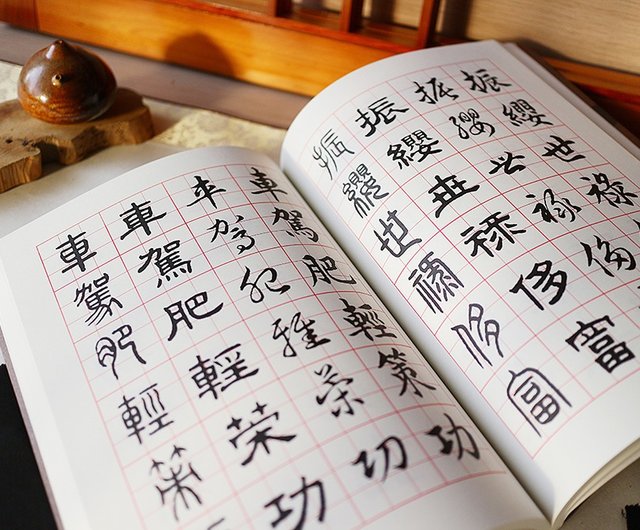 振纓世祿
振纓世祿侈
振纓世祿侈富
振纓世祿侈富
車駕肥輕策功
車駕肥輕策功
車駕肥輕策功
車駕肥輕策